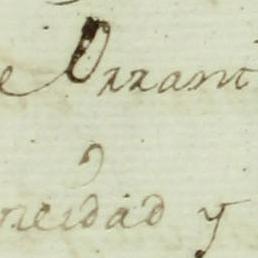 e Urrant
neidad y